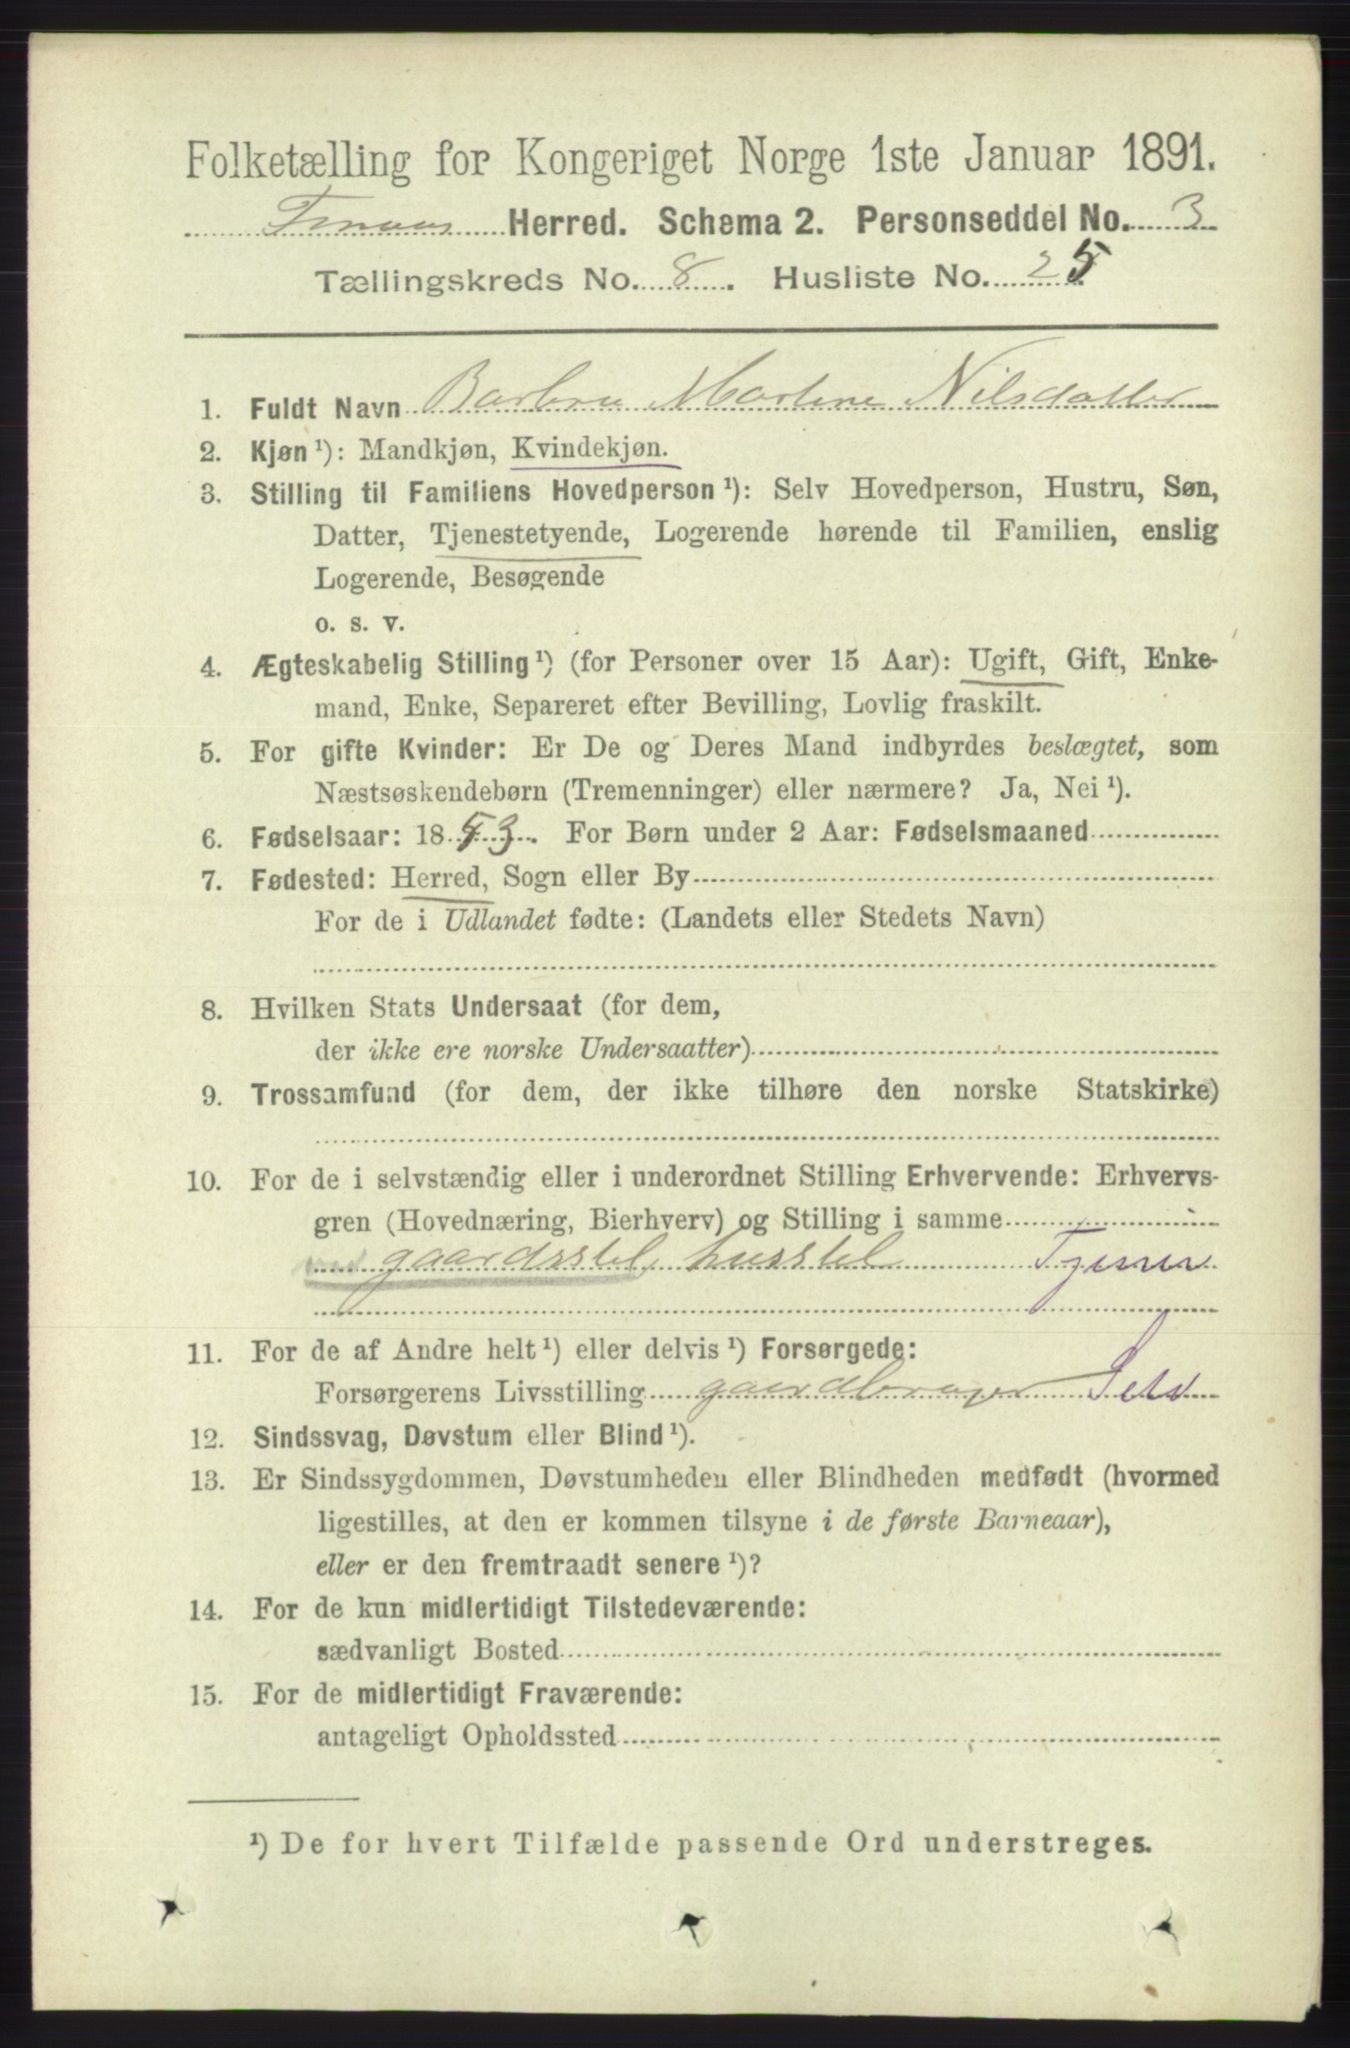 Folketælling for Kongeriget Norge 1ste Januar 1891.
Finnaas Herred. Schema 2. Personseddel No. 3
Tællingskreds No. 8. Husliste No. 25
1. Fuldt Navn Barbru Martene Nilsdatter
2. Kjøn ¹): Mandkjøn, Kvindekjøn.
3. Stilling til Familiens Hovedperson ¹): Selv Hovedperson, Hustru, Søn,
Datter, Tjenestetyende, Logerende hørende til Familien, enslig
Logerende, Besøgende
o. s. v.
4. Ægteskabelig Stilling ¹) (for Personer over 15 Aar): Ugift, Gift, Enke-
mand, Enke, Separeret efter Bevilling, Lovlig fraskilt.
5. For gifte Kvinder: Er De og Deres Mand indbyrdes beslægtet, som
Næstsøskendebørn (Tremenninger) eller nærmere? Ja, Nei ¹).
6. Fødselsaar: 1853. For Børn under 2 Aar: Fødselsmaaned
7. Fødested: Herred, Sogn eller By
For de i Udlandet fødte: (Landets eller Stedets Navn)
8. Hvilken Stats Undersaat (for dem,
der ikke ere norske Undersaatter)
9. Trossamfund (for dem, der ikke tilhøre den norske Statskirke)
10. For de i selvstændig eller i underordnet Stilling Erhvervende: Erhvervs-
gren (Hovednæring, Bierhverv) og Stilling i samme
gaardsstel, husstel Tjener
11. For de af Andre helt ¹) eller delvis ¹) Forsørgede:
Forsørgerens Livsstilling gaardbruger Selv
12. Sindssvag, Døvstum eller Blind ¹).
13. Er Sindssygdommen, Døvstumheden eller Blindheden medfødt (hvormed
ligestilles, at den er kommen tilsyne i de første Barneaar),
eller er den fremtraadt senere ¹)?
14. For de kun midlertidigt Tilstedeværende:
sædvanligt Bosted
15. For de midlertidigt Fraværende:
antageligt Opholdssted
¹) De for hvert Tilfælde passende Ord understreges.